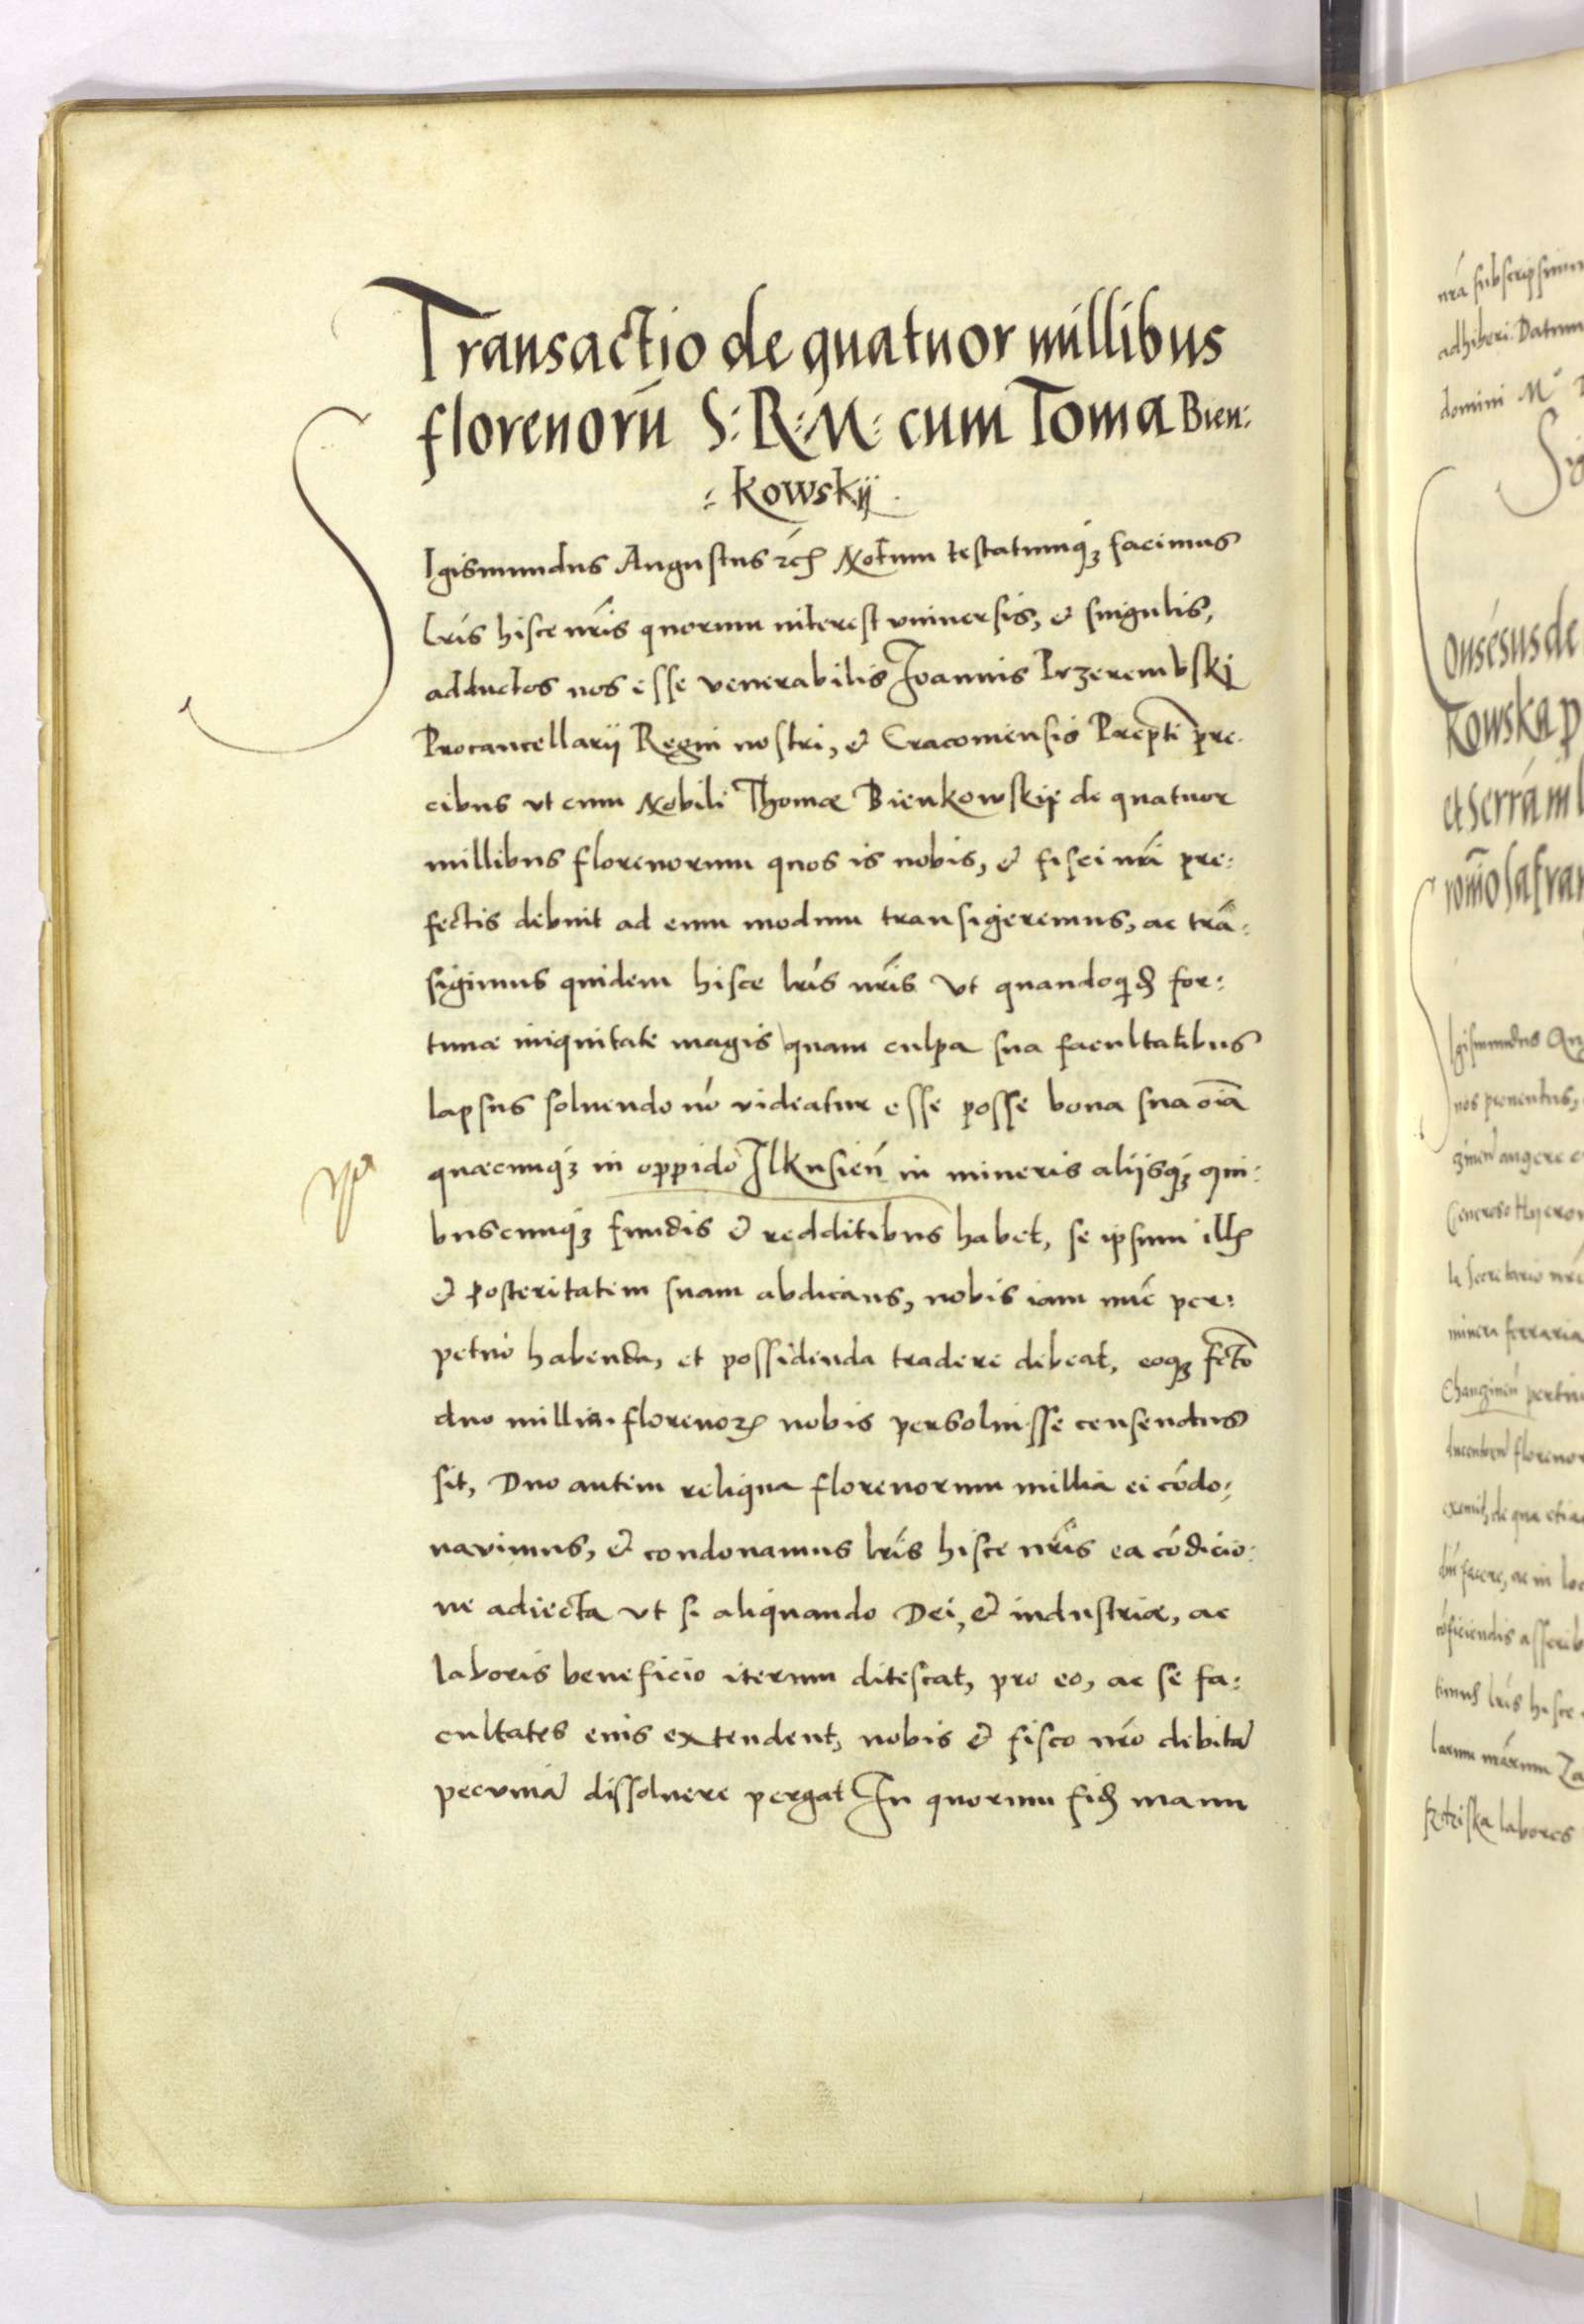 Transactio de quatuor millibus
florenorū S: R: M: cum Toma Bien:
: kowskÿ.
Sigismundus Augustus etc Notum testatumq́ꝫ facimus
lr̃is hisce nr̃is quorum interest vniuersis, et singulis,
adductos nos esse venerabilis Joannis Przerembskÿ
Procancellarij Regni nostri, et Cracouiensis Prepti pre:
cibus vt cum Nobili Thomæ Bienkowskij de quatuor
millibus florenorum quos is nobis, et fisci nr̃i pre:
fectis debuit ad eum modum transigeremus, ac trā:
sigimus quidem hisce lr̃is nr̃is vt quandoqđ for:
tunæ iniquitate magis quam culpa sua facultatibus
lapsus soluendo nō videatur esse posse bona sua oīa
quæcunq́ꝫ in oppido Ilkusień in mineris alijsq́ꝫ qui:
buscunq́ꝫ fundis et redditibus habet, se ipsum
et posteritatem suam abdicans, nobis iam nuc̄ per:
petuò habenda, et possidenda tradere debeat, eoqꝫ fcto
duo millia florenoꝝ nobis persoluisse censendus
sit, Duo autem reliqua florenorum millia ei cōdo:
nauimus, et condonamus lr̃is hisce nr̃is ea cōdicio:
ne adiecta vt si aliquando Dei, et industriæ, ac
laboris beneficio iterum ditescat, pro eo, ac se fa:
cultates eius extendent, nobis et fisco nr̃o debitā
pecuniā dissoluere pergat In quorum fiđ manu
nr̃a subscripsimu
adhiberi. Datum
domini M
onsēsus de
kowska p
et serrā in l
nos
augere
Generoso Hyeron
le Secretario nr̃o
minera ferraria
ducentorū florenor
exemit, de qua etia
facere, ac in loc
cōficiendis asserib
timus lr̃is hisce
labores